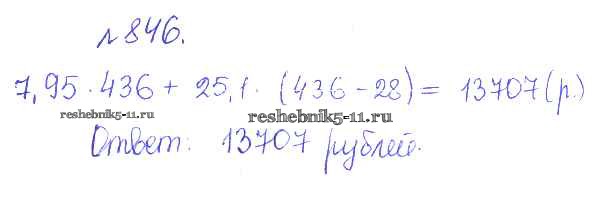 №846.
7,95·436 + 25,1·(436-28) = 13707(р.)
reshebnik5-11.ru reshebnik5-11.ru
Ответ: 13707 рублей.